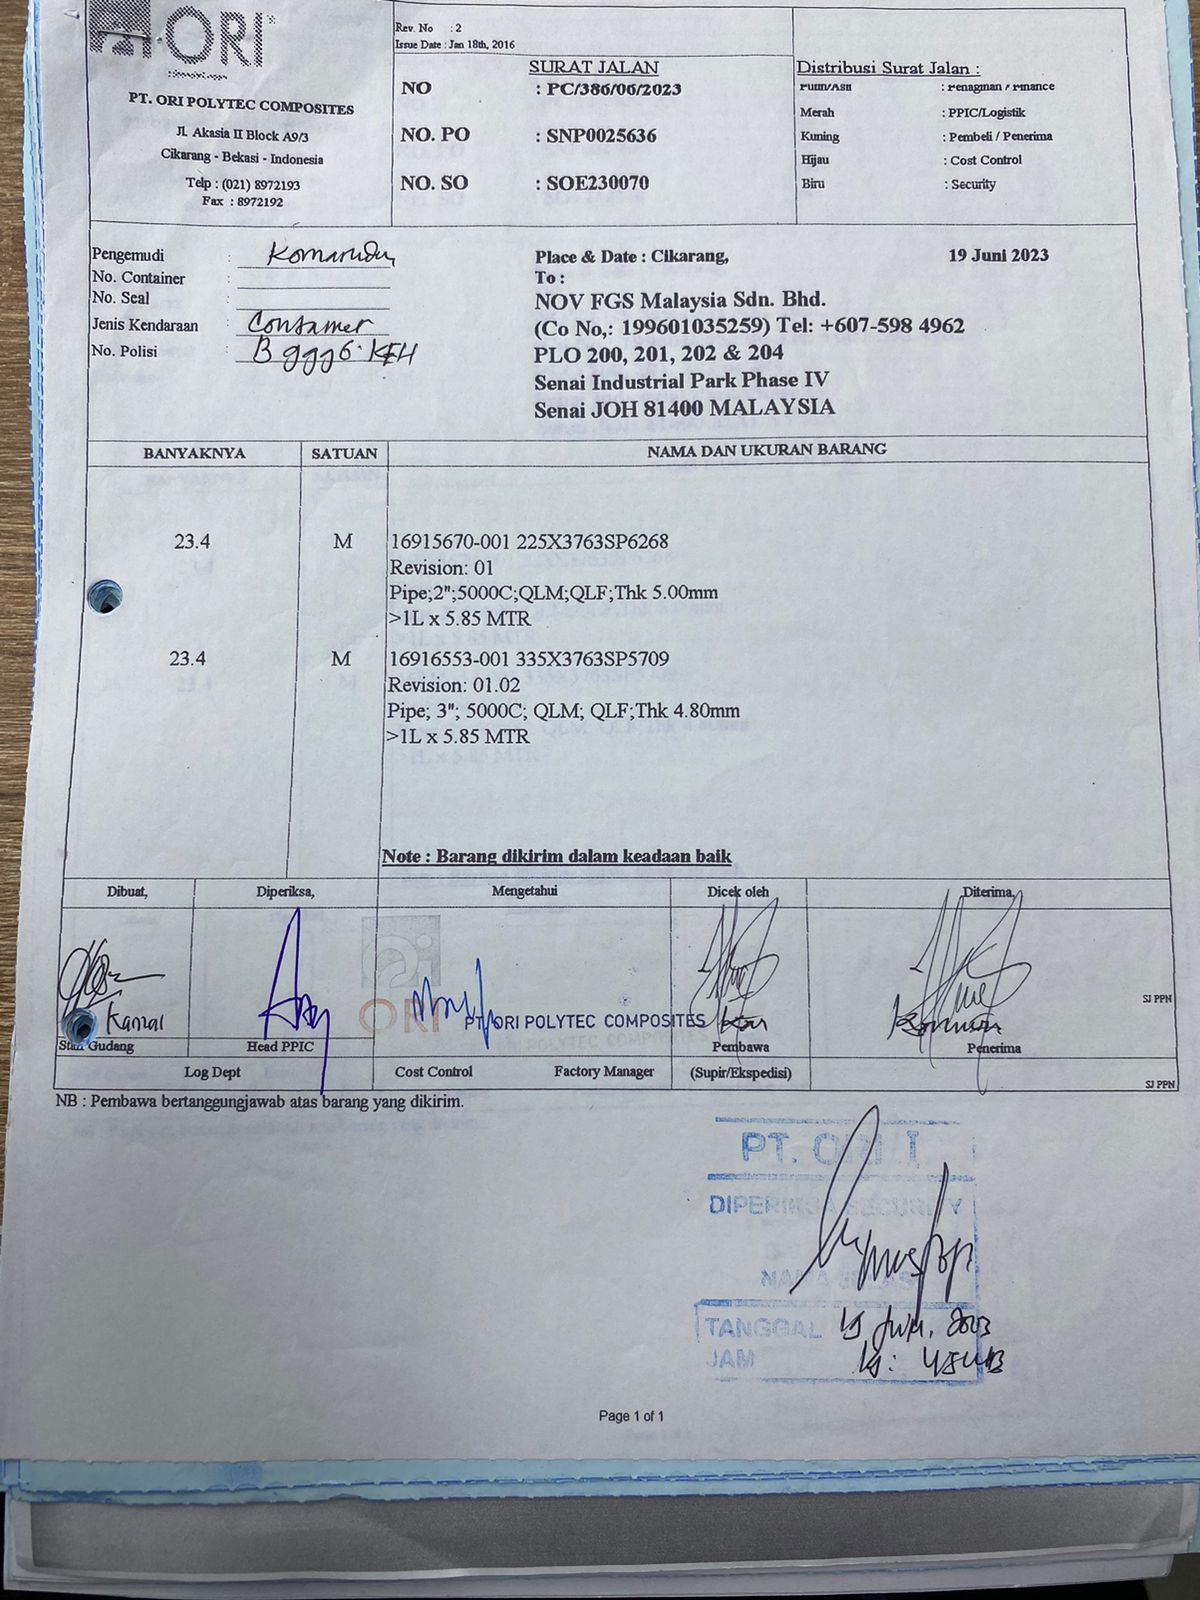 ORI
PT. ORI POLYTEC COMPOSITES
Jl. Akasia II Block A9/3
Cikarang - Bekasi - Indonesia
Telp : (021) 8972193
Fax : 8972192
Rev. No : 2
Issue Date : Jan 18th, 2016
SURAT JALAN
NO : PC/386/06/2023
NO. PO : SNP0025636
NO. SO : SOE230070
Distribusi Surat Jalan :
Putih/Asli : Penagihan / Finance
Merah : PPIC/Logistik
Kuning : Pembeli / Penerima
Hijau : Cost Control
Biru : Security
Pengemudi : Komarudin
No. Container :
No. Seal :
Jenis Kendaraan : Container
No. Polisi : B 9996 KEH
Place & Date : Cikarang, 19 Juni 2023
To :
NOV FGS Malaysia Sdn. Bhd.
(Co No,: 199601035259) Tel: +607-598 4962
PLO 200, 201, 202 & 204
Senai Industrial Park Phase IV
Senai JOH 81400 MALAYSIA
BANYAKNYA SATUAN NAMA DAN UKURAN BARANG
23.4 M 16915670-001 225X3763SP6268
Revision: 01
Pipe;2";5000C;QLM;QLF;Thk 5.00mm
>1L x 5.85 MTR
23.4 M 16916553-001 335X3763SP5709
Revision: 01.02
Pipe; 3"; 5000C; QLM; QLF;Thk 4.80mm
>1L x 5.85 MTR
Note : Barang dikirim dalam keadaan baik
Dibuat, Diperiksa, Mengetahui Dicek oleh Diterima,
ORI
PT. ORI POLYTEC COMPOSITES
Kamal
SJ PPN
Staff Gudang Head PPIC Pembawa Penerima
Log Dept Cost Control Factory Manager (Supir/Ekspedisi)
SJ PPN
NB : Pembawa bertanggungjawab atas barang yang dikirim.
PT. ORI
DIPERIKSA SECURITY
NAMA JELAS
TANGGAL 19 Juni, 2023
JAM
Page 1 of 1